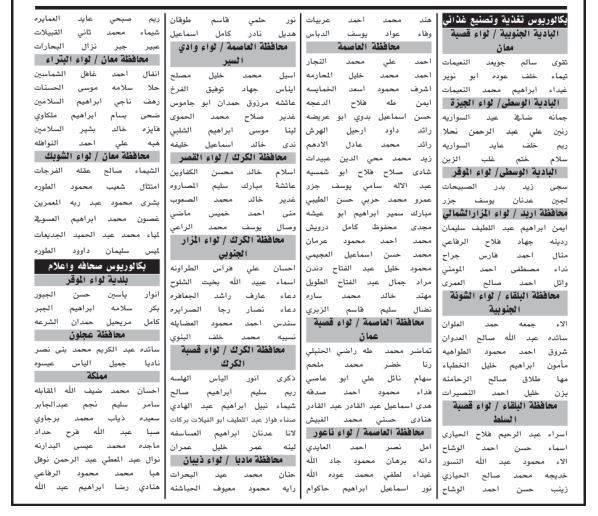 بكالوريوس تغذية وتصنيع غذائي
البادية الجنوبية / لواء قصبة
معان
تقوى سالم جويعد النعيمات
تيماء خلف عوده ابو نوير
غيداء ابراهيم محمد النعيمات
البادية الوسطى/ لواء الجيزة
جمانه ضافي عيد السواريه
رنين علي عبد الرحمن نحلا
ريم خلف عايد السواريه
سلام ختم غلب الزبن
البادية الوسطى/ لواء الموقر
سجى زيد بدر الصبيحات
لجين عدنان يوسف جزر
محافظة اربد / لواء المزارالشمالي
ايمن ابراهيم عبد اللطيف سليمان
ردينه جهاد فلاح الرفاعي
منال احمد فارس جراح
نداء مصطفى احمد المومني
وائل احمد صالح العمري
محافظة البلقاء / لواء الشونة
الجنوبية
الاء جمعه حمد العلوان
سائده عبد الله صالح العدوان
شروق احمد محمود الطواهيه
مأمون ابراهيم خليل الخطباء
مها طلاق صالح الرحامنه
يزن خليل احمد النصيرات
محافظة البلقاء / لواء قصبة
السلط
اسراء عبد الرحيم فلاح الحياري
اسماء حسن احمد الوشاح
الاء محمود عبد الله النسور
خديجه محمد صالح الحيازي
زينب حسن احمد الوشاح
هند محمد احمد عربيات
وفاء عواد يوسف الدباس
محافظة العاصمة
احمد علي محمد النجار
احمد محمد خليل المحارمه
اشرف محمود اسعد الخمايسه
ايمن طه فلاح الدعجه
حسن اسماعيل بدوي ابو عريضه
رائد داود ارحيل الهرش
رائد محمد عادل الادهم
زيد محمد محي الدين عبيدات
شادي صلاح فلاح ابو شمسيه
عبد الاله سامي يوسف جزر
عمرو محمد حربي حسن الطيبي
مبارك سمير ابراهيم ابو عيشه
مجدي محفوظ كامل درويش
محمد احمد محمود عرمان
محمد حسن اسماعيل العجيمي
محمود خليل عبد الفتاح دندن
مراد جمال عبد الفتاح الطويل
مهند خالد محمد ساره
نضال سليم قاسم الزبري
محافظة العاصمة / لواء قصبة
عمان
تماضر محمد طه راضي الحنبلي
رنا خضر محمد ملحم
سهام نائل علي ابو عاصي
فداء محمود احمد صدقه
هدى اسماعيل عبد القادر عبد القادر
هنادي حسني محمد الفييش
محافظة العاصمة / لواء ناعور
امل نصر احمد العايدي
دانه برهان محمود جاد الله
غيداء لطفي محمد عوده الله
نور اسماعيل ابراهيم حاكوام
نور حلمي قاسم طوقان
هديل نادر كامل اسماعيل
محافظة العاصمة / لواء وادي
السير
اسيل محمد خليل مصلح
ايناس جهاد توفيق الفرخ
عائشه مرزوق حمدان ابو جاموس
غدير صلاح محمد الحموي
لينا موسى ابراهيم الشلبي
ندى خالد اسماعيل خليفه
محافظة الكرك / لواء القصر
اسلام خالد محسن الكفاوين
عائشة مبارك سليم المصاروه
غدير خالد محمد الصعوب
منى احمد خميس ماضي
وصال يوسف محمد الراعي
محافظة الكرك / لواء المزار
الجنوبي
احسان علي فراس الطراونه
اسماء عبيد الله بخيت الشلوح
دعاء عارف راشد الجعافره
دعاء نصار رجا الصرايره
سندس احمد محمود الضابله
نسيبه محمد خلف البنوي
محافظة الكرك / لواء قصبة
الكرك
ذكرى انور الياس الهلسه
ريم سليم ابراهيم صالح
شيماء نبيل ابراهيم عبد الهادي
صفاء فواز عبد اللطيف ابو الفيلات بركات
لانا عدنان ابراهيم العساسفه
لينه عمر خليل عمران
محافظة مادبا / لواء ذيبان
حنان محمد عيد البحرات
رايه محمود معيوف الحباشنه
ريم صبحي عايد العمايره
شيماء محمد ثاني القبيلات
عبير جبر نزال البحارات
محافظة معان / لواء البتراء
انفال احمد غافل الشماسين
حلا سلامه موسى الحسنات
رهف ناجي ابراهيم السلامين
ضحى بسام ابراهيم ملكاوي
فايزه خالد بشير السلامين
هبه علي احمد النوافله
محافظة معان / لواء الشوبك
الشيماء صالح عقله الفرجات
امتثال شعيب محمود الطوره
بشرى محمود عبد ربه المعمرين
غصون محمد ابراهيم العسوفي
لمياء محمد عبد الحميد الجديعات
لميس سليمان داوود الطوره
بكالوريوس صحافه واعلام
بلدية لواء الموقر
انوار ياسين حسن الجبور
بكر سلامه ابراهيم الجبر
كامل مريحيل حمدان الشرعه
محافظة عجلون
سائده عبد الكريم محمد بني نصر
ناديا جميل الياس عيسوه
مملكة
احسان محمد ضيف الله المقابله
سامر سليم نجم عبدالجابر
سعيده ذياب محمد برجاوي
صبا عبد الله فرح حداد
ماجده محمد عيسى البدارنه
نوال عبد المعطي عبد الرحمن نوفل
هبا محمد محمود الرفاعي
هنادي رضا ابراهيم عبد الله